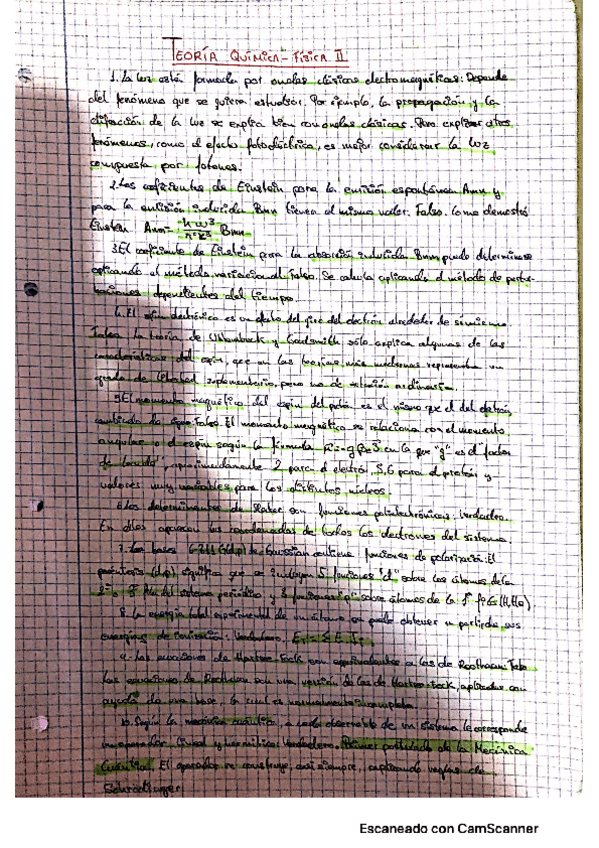 TEORÍA QUÍMICA-FÍSICA II
1. La luz está formada por ondas clásicas electromagnéticas: Depende
del fenómeno que se quiera estudiar. Por ejemplo, la propagación y la
difracción de la luz se explica bien con ondas clásicas. Para explicar otros
fenómenos, como el efecto fotoeléctrico, es mejor considerar la luz
compuesta por fotones.
2. Los coeficientes de Einstein para la emisión espontánea Amn y
para la emisión inducida Bmn tienen el mismo valor. Falso. Como demostró
Einstein Amn=
3. El coeficiente de Einstein para la absorción inducida Bnm puede determinarse
aplicando el método variacional. Falso. Se calcula aplicando el método de pertur-
baciones dependientes del tiempo.
4. El spin electrónico es un efecto del giro del electrón alrededor de si mismo
Falso. La teoría de Uhlenbeck y Goudsmith sólo explica algunas de las
características del spin, que en las teorías más modernas representa un
grado de libertad suplementario, pero no de rotación ordinaria.
5. El momento magnético del espin del protón es el mismo que el del electrón,
cambiado de signo. Falso. El momento magnético se relaciona con el momento
angular o el espin según la fórmula en la que "g" es el factor
de Landé, aproximadamente 2 para el electrón, 5,6 para el protón y
valores muy variables para los distintos núcleos.
6. Los determinantes de Slater son funciones polielectrónicas. Verdadero.
En ellos aparecen las coordenadas de todos los electrones del sistema.
7. Las bases 6-211G(d,p) de Gaussian contiene funciones de polarización: El
paréntesis (d,p) significa que se incluyen 5 funciones "d" sobre los átomos de la
del sistema periódico y 3 funciones "p" sobre átomos de la (H, He).
8. La energía total experimental de un átomo se puede obtener a partir de sus
energías de ionización. Verdadero.
9. Las ecuaciones de Hartree-Fock son equivalentes a las de Roothaan. Falso
Las ecuaciones de Roothaan son una versión de las de Hartree-Fock, aplicadas con
ayuda de una base, la cual es normalmente incompleta.
10. Según la mecánica cuántica, a cada observable de un sistema le corresponde
un operador lineal y hermítico: Verdadero. Primer postulado de la Mecánica
Cuántica. El operador se construye, casi siempre, aplicando reglas de
Schrödinger.
Escaneado con CamScanner